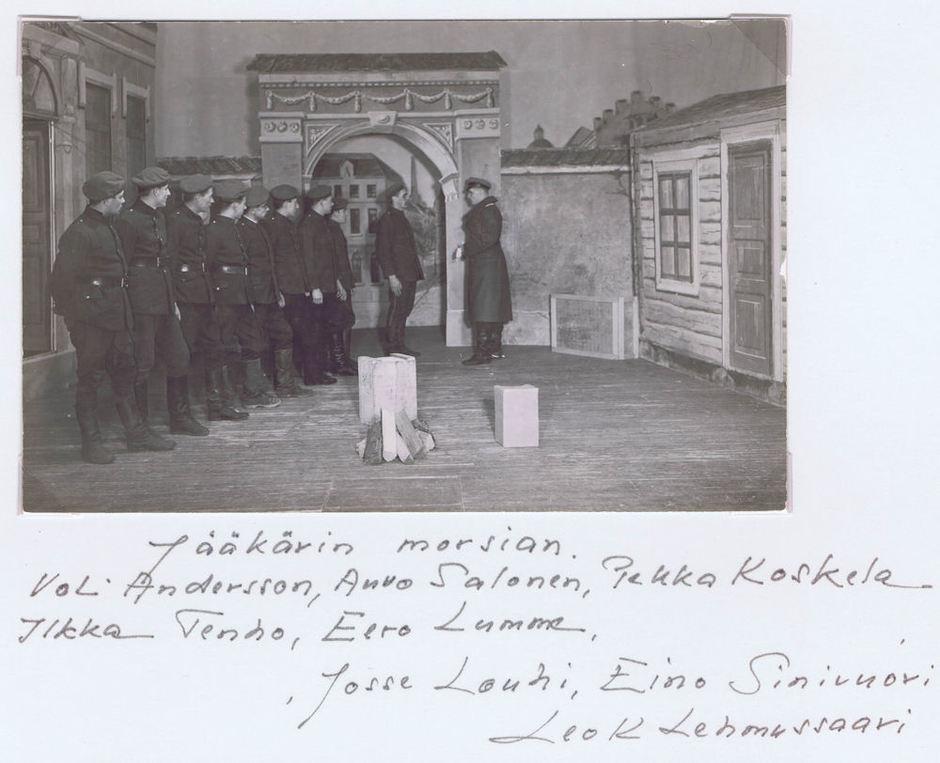 Jääkärin morsian.
Voi Andersson, Auvo Salonen, Pekka Koskela
Ilkka Tenho, Eero Lumme,
, Josse Louhi, Eino Sinivuori
Leo K Lehmussaari